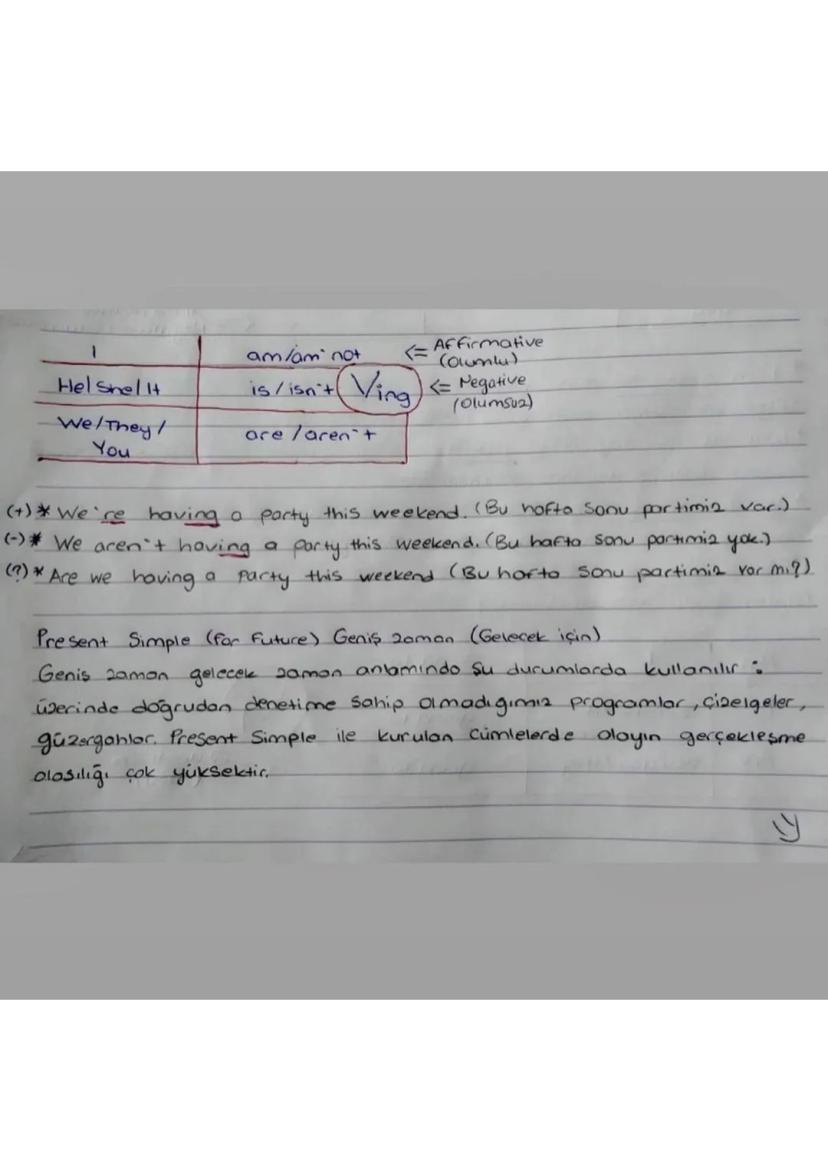 I am/am not <= Affirmative
(Olumlu)
He/She/It is/isn't Ving <= Negative
(Olumsuz)
We/They/ are/aren't
You
(+)* We're having a party this weekend. (Bu hafta sonu partimiz var.)
(-)* We aren't having a party this weekend. (Bu hafta sonu partimiz yok.)
(?)* Are we having a party this weekend (Bu hafta sonu partimiz var mı?)
Present Simple (For Future) Geniş zaman (Gelecek için)
Geniş zaman gelecek zaman anlamında şu durumlarda kullanılır :
üzerinde doğrudan denetime sahip olmadığımız programlar, çizelgeler,
güzergahlar. Present Simple ile kurulan cümlelerde olayın gerçekleşme
olasılığı çok yüksektir.